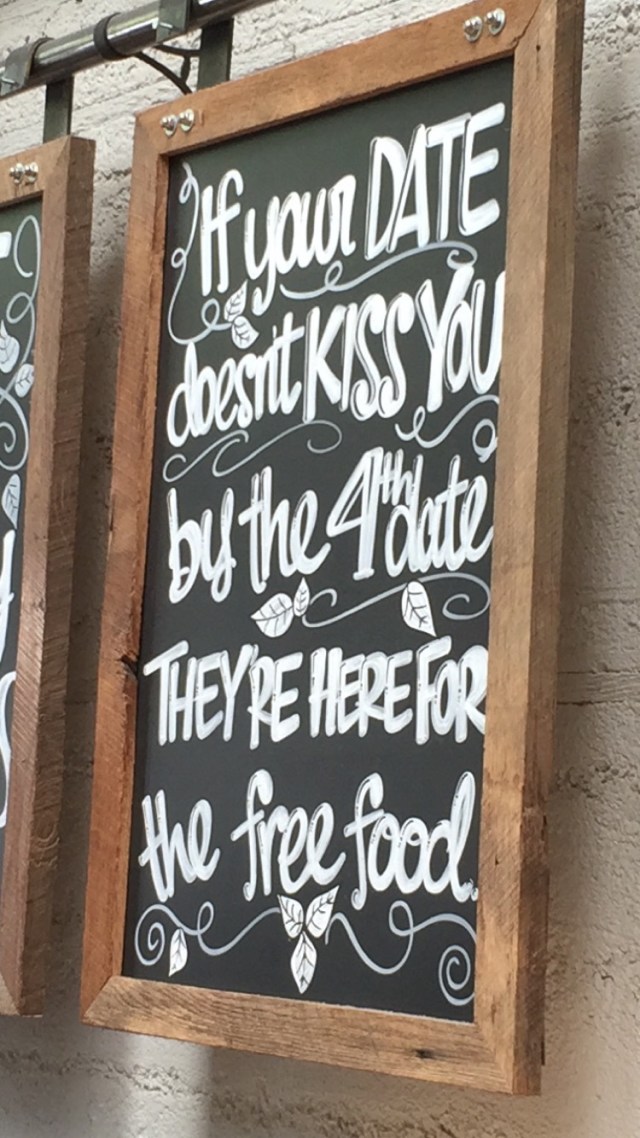 If your DATE
doesn't KISS YOU
by the 4th date
THEY'RE HERE FOR
the free food.